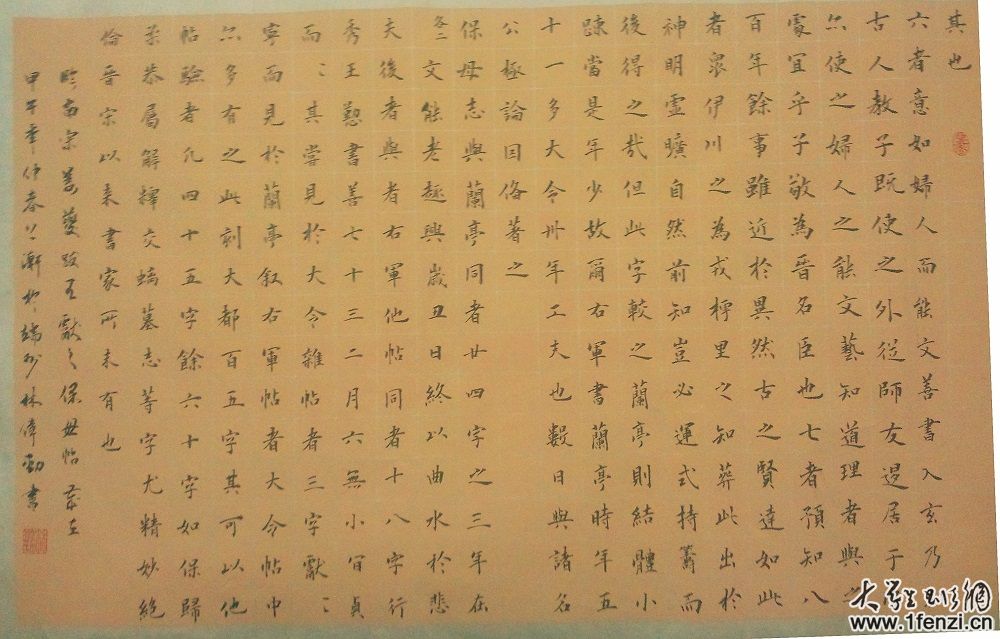 其也
六者意如婦人而能文善書入玄乃
古人教子既使之外從師友退居于
亦使之婦人之能文藝知道理者與之
處宜乎子敬為晉名臣也七者預知八
百年餘事雖近於異然古之賢達如此
者眾伊川之為戎樗里之知葬此出於
神明靈曠自然前知豈必運式持蓍而
後得之哉但此字較之蘭亭則結體小
踈當是年少故爾右軍書蘭亭時年五
十一多大令卅年工夫也數日與諸名
公極論因俻著之
保母志與蘭亭同者廿四字之三年在
各二文能老趣興歲丑日終以曲水於悲
夫後者與者右軍他帖同者十八字行
秀王懃書善七十三二月六無小冝貞
而二其嘗見於大令雜帖者三字獻二
寧而見於蘭亭叙右軍帖者大令帖中
亦多有之此刻大都百五字其可以他
帖驗者凡四十五字餘六十字如保歸
柔恭屬解釋交螭墓志等字尤精妙絕
倫晉宋以来書家所未有也
臨南宋姜夔跋王獻之保母帖
甲午年仲春 於端州林偉勤書
www.1fenzi.cn